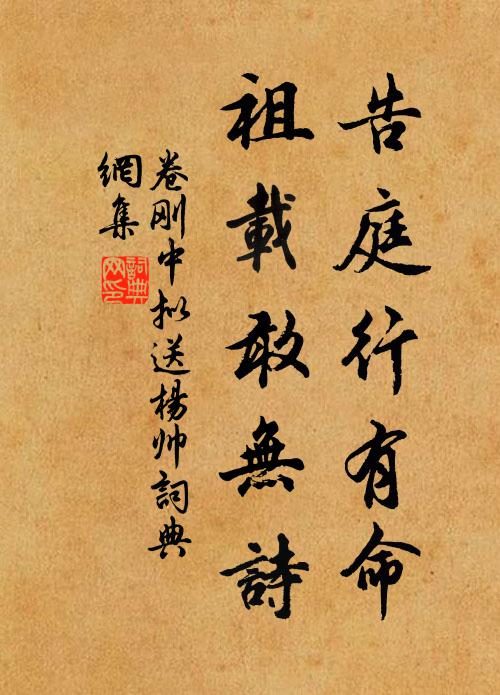 告庭行有命
祖載敢無詩
卷刚中拟送楊帅詞典
網集
詞典
网印